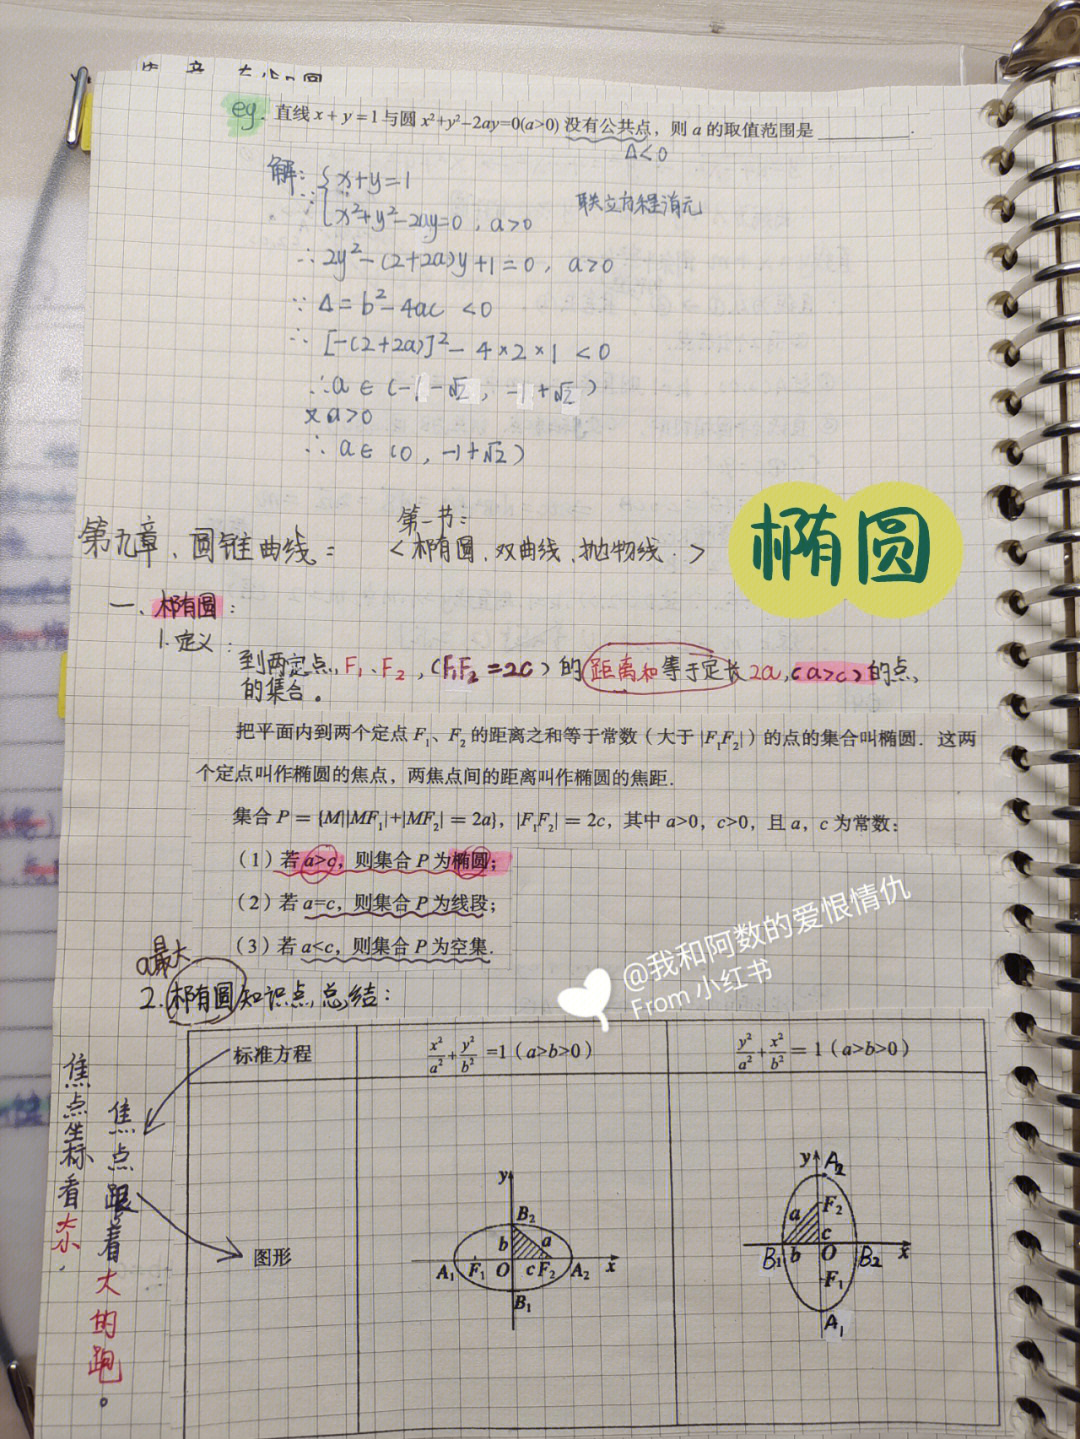 eg. 直线 x + y = 1 与圆 x²+y²-2ay=0(a>0) 没有公共点，则 a 的取值范围是________.
Δ<0
解：∵{x+y=1
x²+y²-2ay=0，a>0
联立方程消元
∴ 2y²-(2+2a)y+1=0，a>0
∵ Δ=b²-4ac <0
∴ [-(2+2a)]²-4×2×1 <0
∴a∈(-1-√2，-1+√2)
又a>0
∴ a∈(0，-1+√2)
第九章、圆锥曲线：
第一节：
<椭圆、双曲线、抛物线.>
椭圆
一、椭圆：
1.定义：
到两定点F₁、F₂，(F₁F₂=2c)的距离和等于定长2a，(a>c)的点
的集合。
把平面内到两个定点 F₁、F₂ 的距离之和等于常数（大于 |F₁F₂|）的点的集合叫椭圆．这两
个定点叫作椭圆的焦点，两焦点间的距离叫作椭圆的焦距．
集合 P = {M||MF₁|+|MF₂| = 2a}，|F₁F₂| = 2c，其中 a>0，c>0，且 a，c 为常数：
（1）若 a>c，则集合 P 为椭圆；
（2）若 a=c，则集合 P 为线段；
（3）若 a<c，则集合 P 为空集．
a最大
2.椭圆知识点总结：
@我和阿数的爱恨情仇
From 小红书
标准方程
x²/a²+y²/b²=1（a>b>0）
y²/a²+x²/b²=1（a>b>0）
焦点坐标看大小.
焦点跟着大的跑。
图形
y
B₂
b
a
A₁
F₁
O
c
F₂
A₂
x
B₁
y
A₂
a
F₂
c
B₁
b
O
B₂
x
F₁
A₁